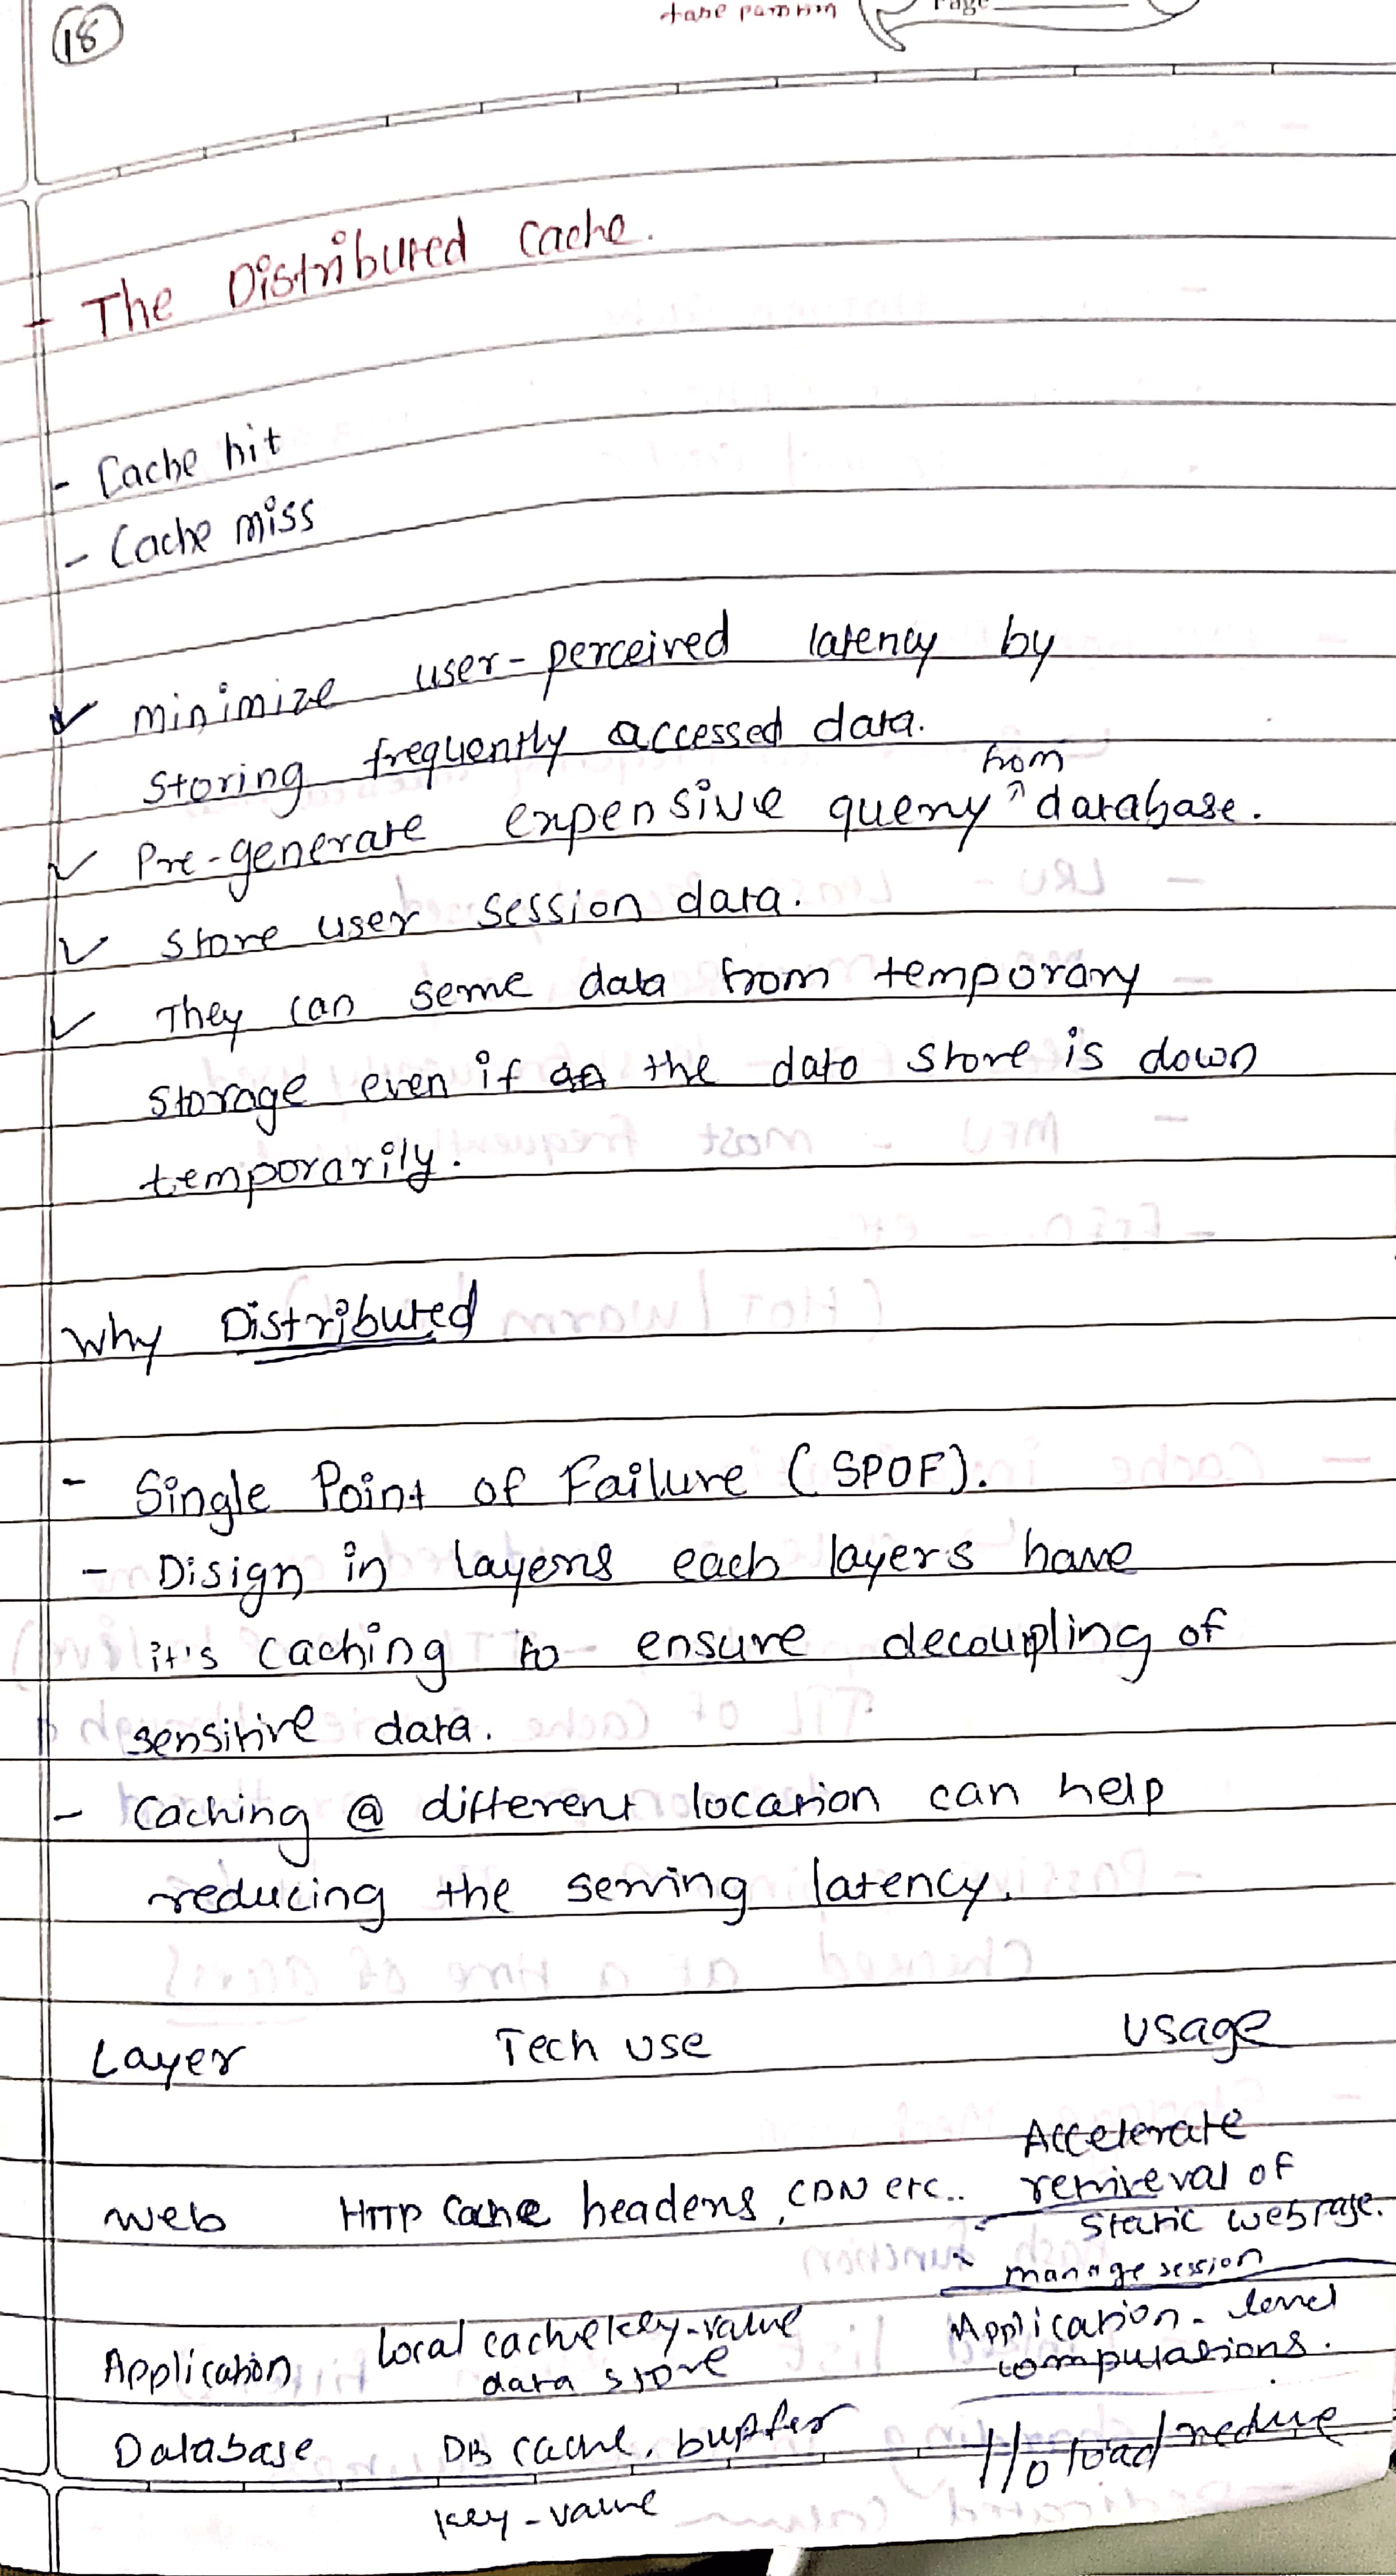 18
Page
- The Distributed Cache.
- Cache hit
- Cache miss
✓ minimize user-perceived latency by
storing frequently accessed data.
from
✓ Pre-generate expensive query ^ database.
✓ store user session data.
✓ They can serve data from temporary
storage even if the data store is down
temporarily.
Why Distributed
- Single Point of Failure (SPOF).
- Disign in layers each layers have
it's caching to ensure decoupling of
sensitive data.
- Caching @ different location can help
reducing the serving latency.
Layer Tech use usage
Accelerate
Web HTTP Cache headers, CDN etc.. retrieval of
static webpage.
- manage session
Application Local cache key-value Application-level
data store computations.
Database DB cache, buffer I/o load reduce
key-value